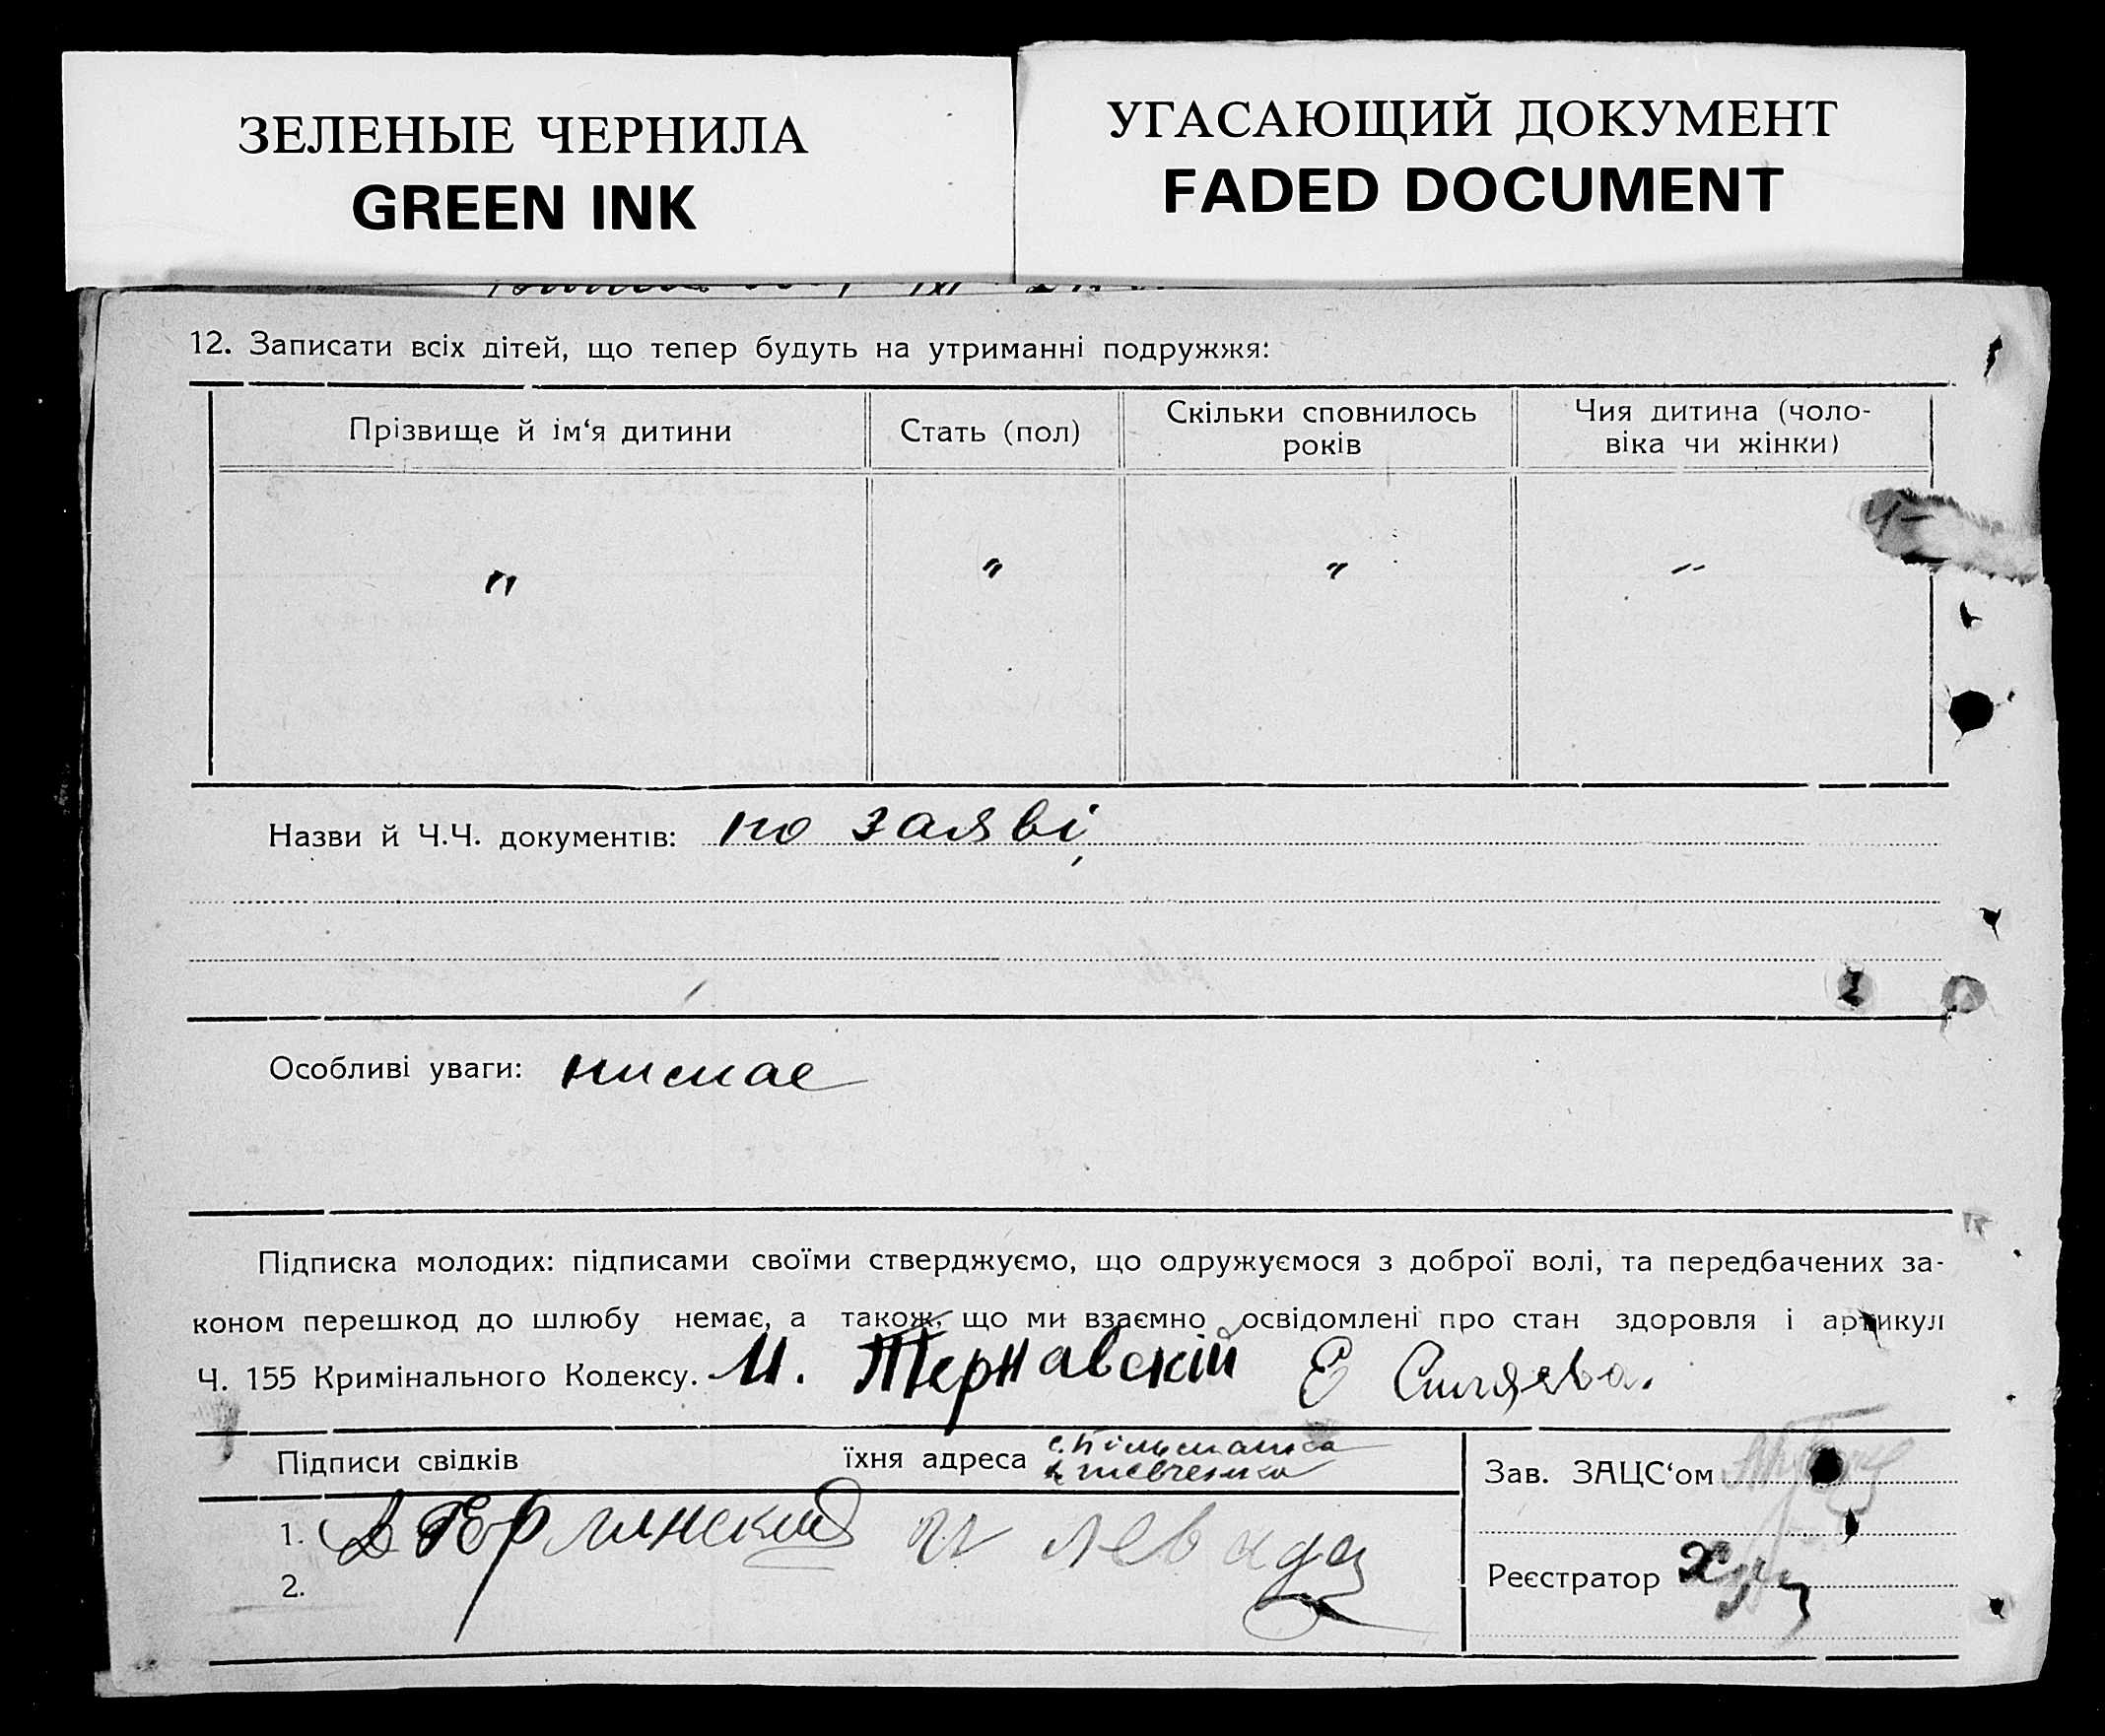 ЗЕЛЕНЫЕ ЧЕРНИЛА
GREEN INK
УГАСАЮЩИЙ ДОКУМЕНТ
FADED DOCUMENT
12. Записати всіх дітей, що тепер будуть на утриманні подружжя:
Прізвище й ім‘я дитини
Стать (пол)
Скільки сповнилось
років
Чия дитина (чоло-
віка чи жінки)
" " " "
Назви й Ч.Ч. документів: по заяві
Особливі уваги: нимає
Підписка молодих: підписами своїми стверджуємо, що одружуємося з доброї волі, та передбачених за-
коном перешкод до шлюбу немає, а також, що ми взаємно освідомлені про стан здоровля і артикул
Ч. 155 Кримінального Кодексу. И. Тернавскій Е
Підписи свідків їхня адреса с.
Шевченка
1.
и левада
2.
Зав. ЗАЦС‘ом
Реєстратор